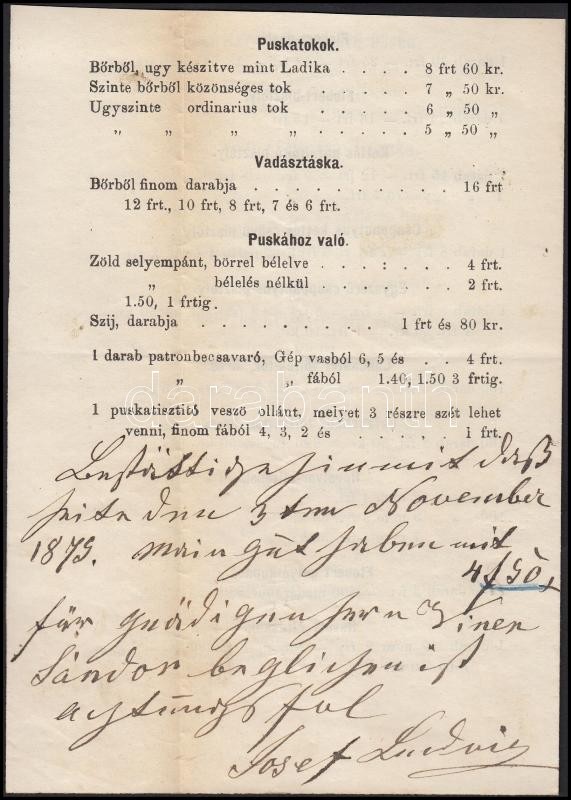 Puskatokok.
Bőrből, ugy készitve mint Ladika . . . . 8 frt 60 kr.
Szinte bőrből közönséges tok . . . . . 7 „ 50 kr.
Ugyszinte ordinarius tok . . . . . 6 „ 50 „
„ „ „ „ . . . . . 5 „ 50 „
Vadásztáska.
Bőrből finom darabja . . . . . . . . . 16 frt
12 frt., 10 frt, 8 frt, 7 és 6 frt.
Puskához való.
Zöld selyempánt, börrel bélelve . . : . . 4 frt.
„ bélelés nélkül . . . . . 2 frt.
1.50, 1 frtig.
Szij, darabja . . . . . . . . . 1 frt és 80 kr.
1 darab patronbecsavaró, Gép vasból 6, 5 és . . 4 frt.
„ „ fából 1.40, 1.50 3 frtig.
1 puskatisztitó veszö ollánt, melyet 3 részre szét lehet
venni, finom fából 4, 3, 2 és . . . . 1 frt.
darabanth
Bestättige hinmit daß
heite den 3ten November
1879. mein gut haben mit
4f 50
für gnädigen hern Winer
Sándor beglichen ist
achtungsfol
Josef Ludvig